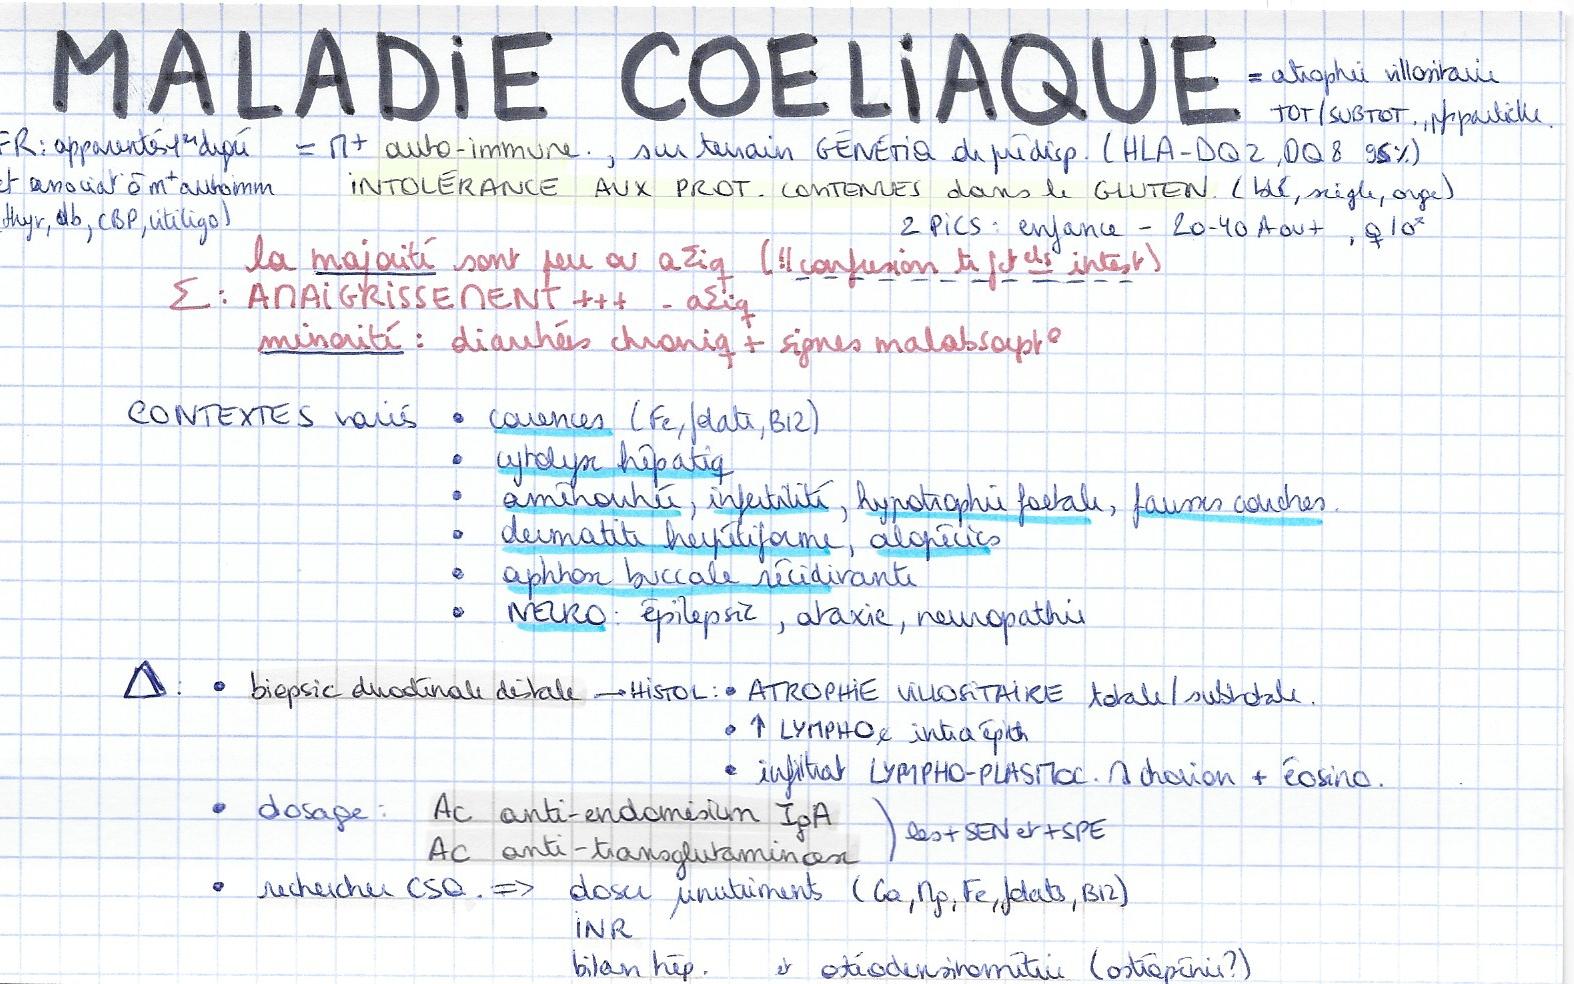 MALADiE COELiAQUE = atrophie villositaire
TOT/SUBTOT., parfs partielle.
FR: apparentés 1er degré = M+ auto-immune., sur terrain GÉNÉTIQ de prédisp. (HLA-DQ2, DQ8 95%)
et associat° à m+ autoimm INTOLÉRANCE AUX PROT. CONTENUES dans le GLUTEN. (blé, seigle, orge)
thyr, db, CBP, vitiligo) 2 PiCS: enfance - 20-40A av+, ♀
la majorité sont peu ou aΣiq (!! confusion tb fct intest)
Σ: AMAiGRiSSEMENT +++ - aΣiq
minorité: diarrhées chroniq + signes malabsorpt°
CONTEXTES variés • carences (Fe, folate, B12)
• cytolyse hépatiq
• aménorrhée, infertilité, hypotrophie foetale, fausses couches.
• dermatite herpétiforme, alopécies
• aphtose buccale récidivante
• NEURO: épilepsie, ataxie, neuropathie
Δ: • biopsie duodénale distale → HiSTOL: • ATROPHiE ViLLOSiTAiRE totale/subtotale.
• ↑ LYMPHOc intra épith
• infiltrat LYMPHO-PLASMOC. ds chorion + éosino.
• dosage: Ac anti-endomésium IgA
Ac anti-transglutaminase ) les + SEN et + SPE
• rechercher CSQ. => doser µnutriments (Ca, Mg, Fe, folats, B12)
iNR
bilan hép. et ostéodensitométrie (ostéopénie?)